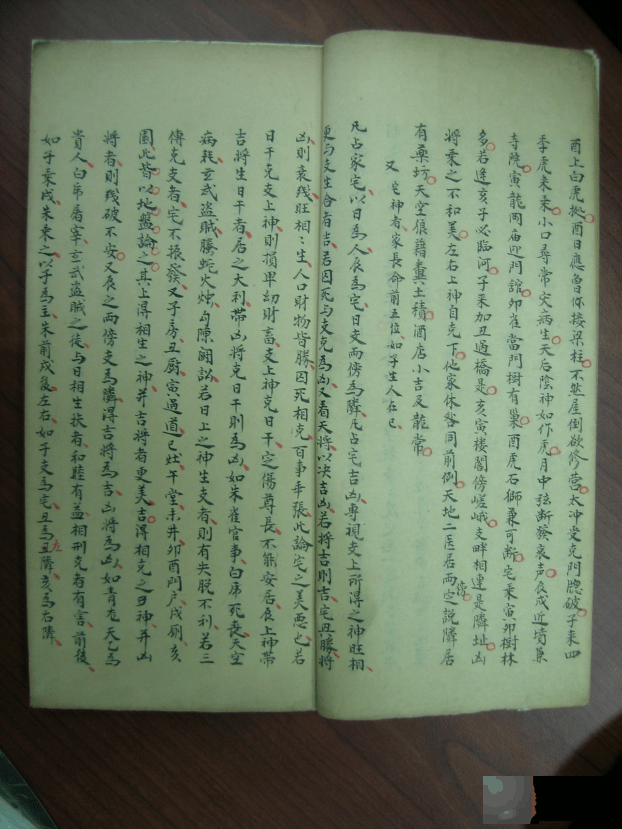 酉上白虎挨酉日應曾你接梁柱不然屋倒欲修营太冲受克門牕破子来四
季虎来乘小口尋常灾病生天后陰神如作虎月中弦断發哀声辰戌近墳寡
寺院寅龍同廟迎門舘卯雀當門樹有巢酉虎石獅兼可断宅乘寅卯樹林
多若逢亥子必臨河子来加丑過橋是亥寅楼閣傍嵯峨支畔相連是隣址凶
將乘之不和美左右上神自克下他家休咎同前例天地二医居两空説隣居
有藥坊天空狼藉糞土積酒店小吉及龍常
又宅神者家長命前五位如子生人在巳
凡占家宅以日爲人辰爲宅日支兩傍爲隣凡占宅吉凶專視支上所得之神旺相
更与支生合者吉若囚死与支克爲凶又看天将以决吉凶若將吉則吉宅興勝將
凶則衰残旺相相生人口財物皆勝囚死相克百事乖張此論宅之美悪也若
日干克支上神則損卑幼財畜支上神克日干定傷尊長不能安居辰上神带
吉將生日干者居之大利带凶將克日干則爲凶如朱雀官事白虎死喪天空
病耗玄武盗賊螣蛇火燭勾陳闘訟若日上之神生支者則有失脱不利若三
傳克支者宅不振發又子房丑厨寅過道巳灶午堂未井卯酉門户戌厠亥
圂此皆以地盤論之其上得相生之神并吉將者更美吉得相克之神并凶
將者則残破不安又辰之兩傍支爲隣得吉將爲吉凶將爲凶如青龙天乙爲
貴人白虎屠宰玄武盗賊之徒与日相生扶者和睦有益相刑克者有害前後
如子乘戌来乘之以子爲主朱前戌後左右如子支爲宅丑爲左隣亥爲右隣